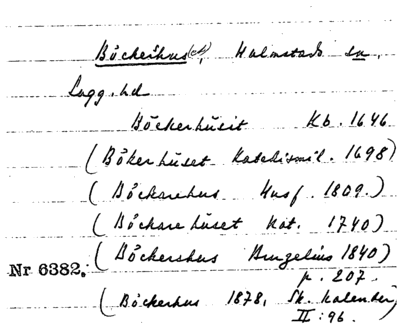 Böckerhus(et), Halmstads sn.
Lugg. hd
Böckerhusit Kb. 1646
(Böker huset Katekismil. 1698)
(Böckarehus Husf. 1809.)
(Böckare huset Kat. 1740)
(Böckershus Bruzelius 1840)
Nr 6382. p. 207.
(Böckerhus 1878, Sk. Kalender,
II: 96.